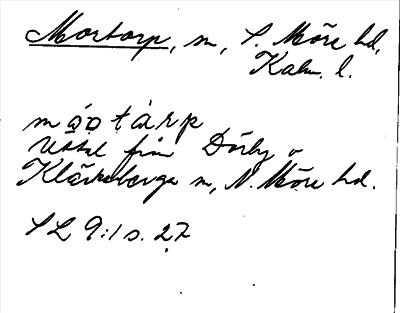 Mortorp, sn, S. Möre hd,
Kalm. l.
mo̱o̱tàrp
Uttal från Dörby o
Kläckeberga sn, N. Möre hd.
SL 9:1 s. 27